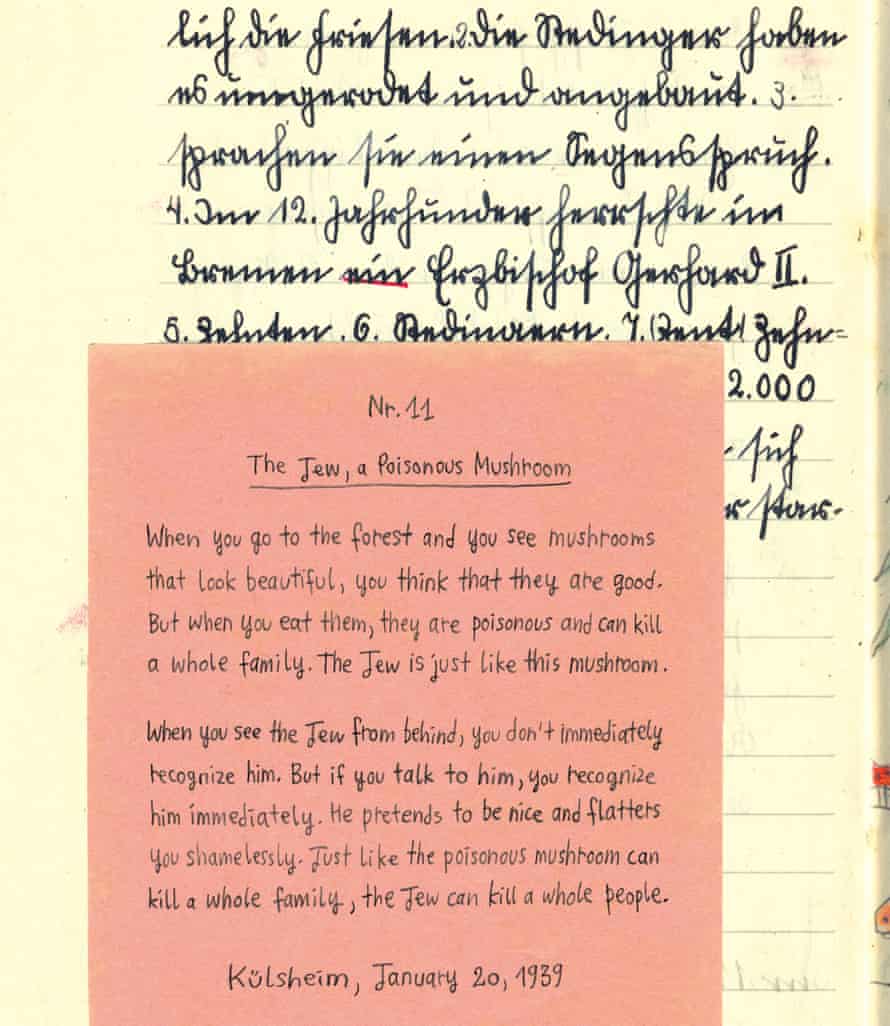 lich die Friesen. 2. Die Stedinger haben
es umgerodet und angebaut. 3.
sprachen sie einen Segensspruch.
4. Im 12. Jahrhunder herrschte im
Bremen ein Erzbischof Gerhard II.
5. Zehnten. 6. Stedingern. 7. Zehn=
2.000
sich
star-
Nr. 11
The Jew, a Poisonous Mushroom
When you go to the forest and you see mushrooms
that look beautiful, you think that they are good.
But when you eat them, they are poisonous and can kill
a whole family. The Jew is just like this mushroom.
When you see the Jew from behind, you don't immediately
recognize him. But if you talk to him, you recognize
him immediately. He pretends to be nice and flatters
you shamelessly. Just like the poisonous mushroom can
kill a whole family, the Jew can kill a whole people.
Külsheim, January 20, 1939